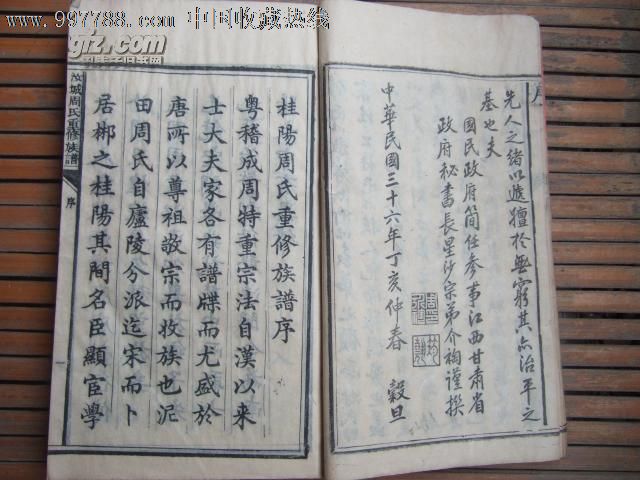 www.997788.com 中国收藏热线
先人之绪以遗膻於无穷其亦治平之
基也夫
國民政府简任参事江西甘肅省
政府秘書長星沙宗弟介裪謹撰
中華民國三十六年丁亥仲春 穀旦
序
汝城周氏重修族譜
序
桂陽周氏重修族譜序
粤稽成周特重宗法自漢以来
士大夫家各有譜牒而尤盛於
唐所以尊祖敬宗而收族也泥
田周氏自廬陵分派迄宋而卜
居郴之桂陽其間名臣顯宦學